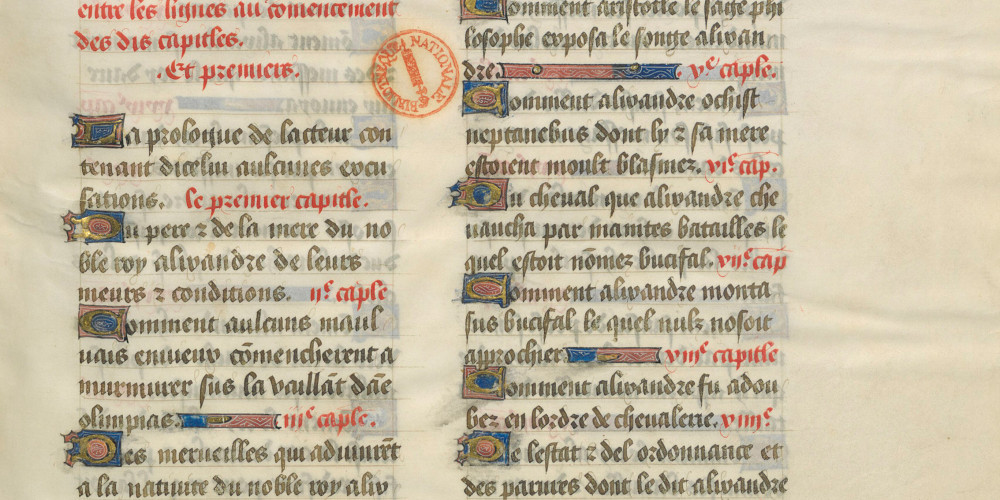 entre les lignes au comencement
des dis capitles.
. Et premiers.
La prologue de lacteur con
tenant dicelui aulcunes excu
sations. le premier capitle.
Du pere ⁊ de la mere du no
ble roy alixandre de leurs
meurs ⁊ conditions. iie caple
Comment aulcuns maul
uais enuieux cōmencherent a
murmurer sus la vaillāt dāe
olimpias. iiie caple.
Des merueilles qui aduinrēt
a la natiuite du noble roy alix
Comment aristotle le sage phi
losophe exposa le songe alixan
dre. ve caple.
Comment alixandre ochist
neptanebus dont ly ⁊ sa mere
estoient moult blasmez. vie cap.
Du cheual que alixandre che
uaucha par maintes batailles le
quel estoit nōmez bucifal. viie cap
Comment alixandre monta
sus bucifal le quel nulz nosoit
approchier. viiie capitle
Comment alixandre fu adou
bez en lordre de cheualerie. viiiie
De lestat ⁊ del ordonnance et
des parures dont le dit alixandre
BIBLIOTHEQUE NATIONALE